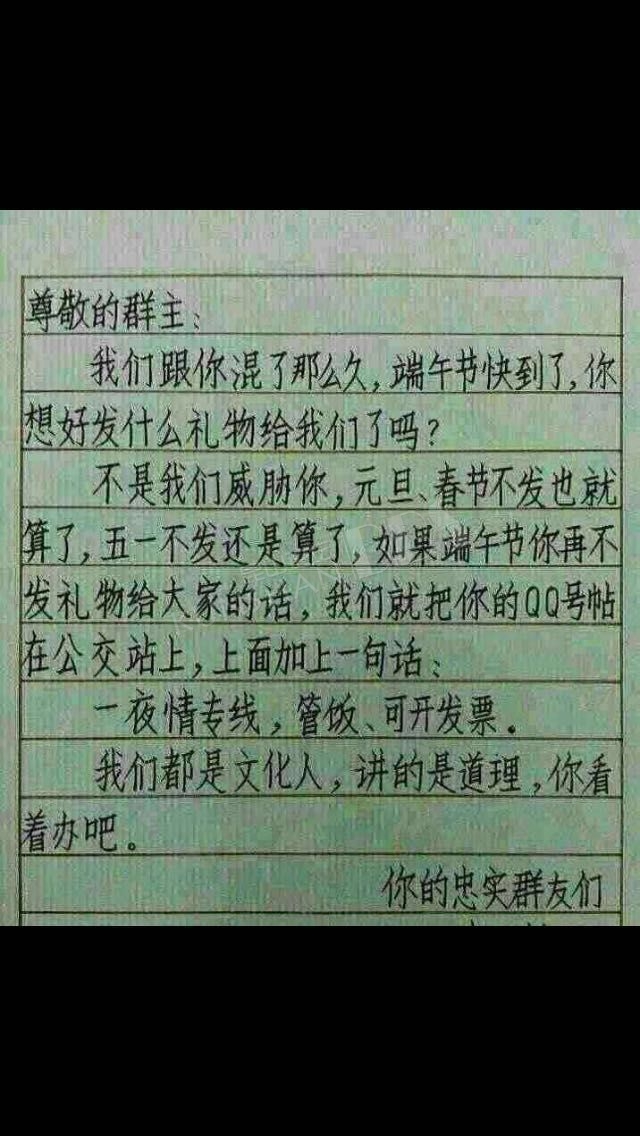 尊敬的群主：
我们跟你混了那么久，端午节快到了，你
想好发什么礼物给我们了吗？
不是我们威胁你，元旦、春节不发也就
算了，五一不发还是算了，如果端午节你再不
发礼物给大家的话，我们就把你的QQ号帖
在公交站上，上面加上一句话：
一夜情专线，管饭、可开发票。
我们都是文化人，讲的是道理，你看
着办吧。
你的忠实群友们